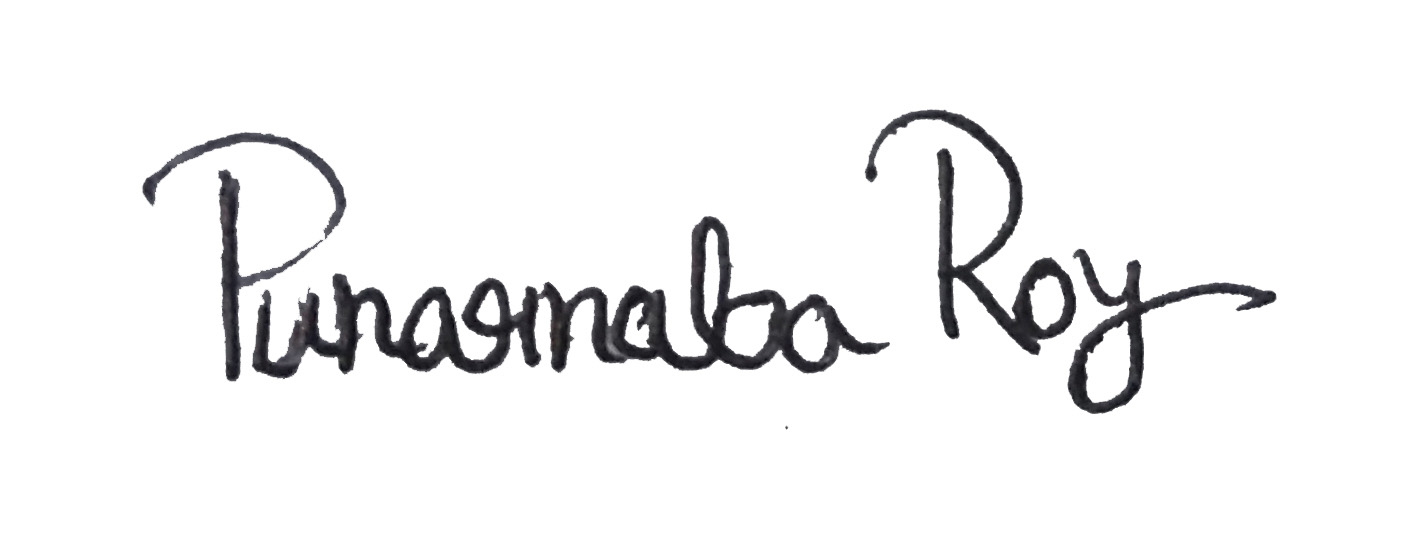 Punarnaba Roy